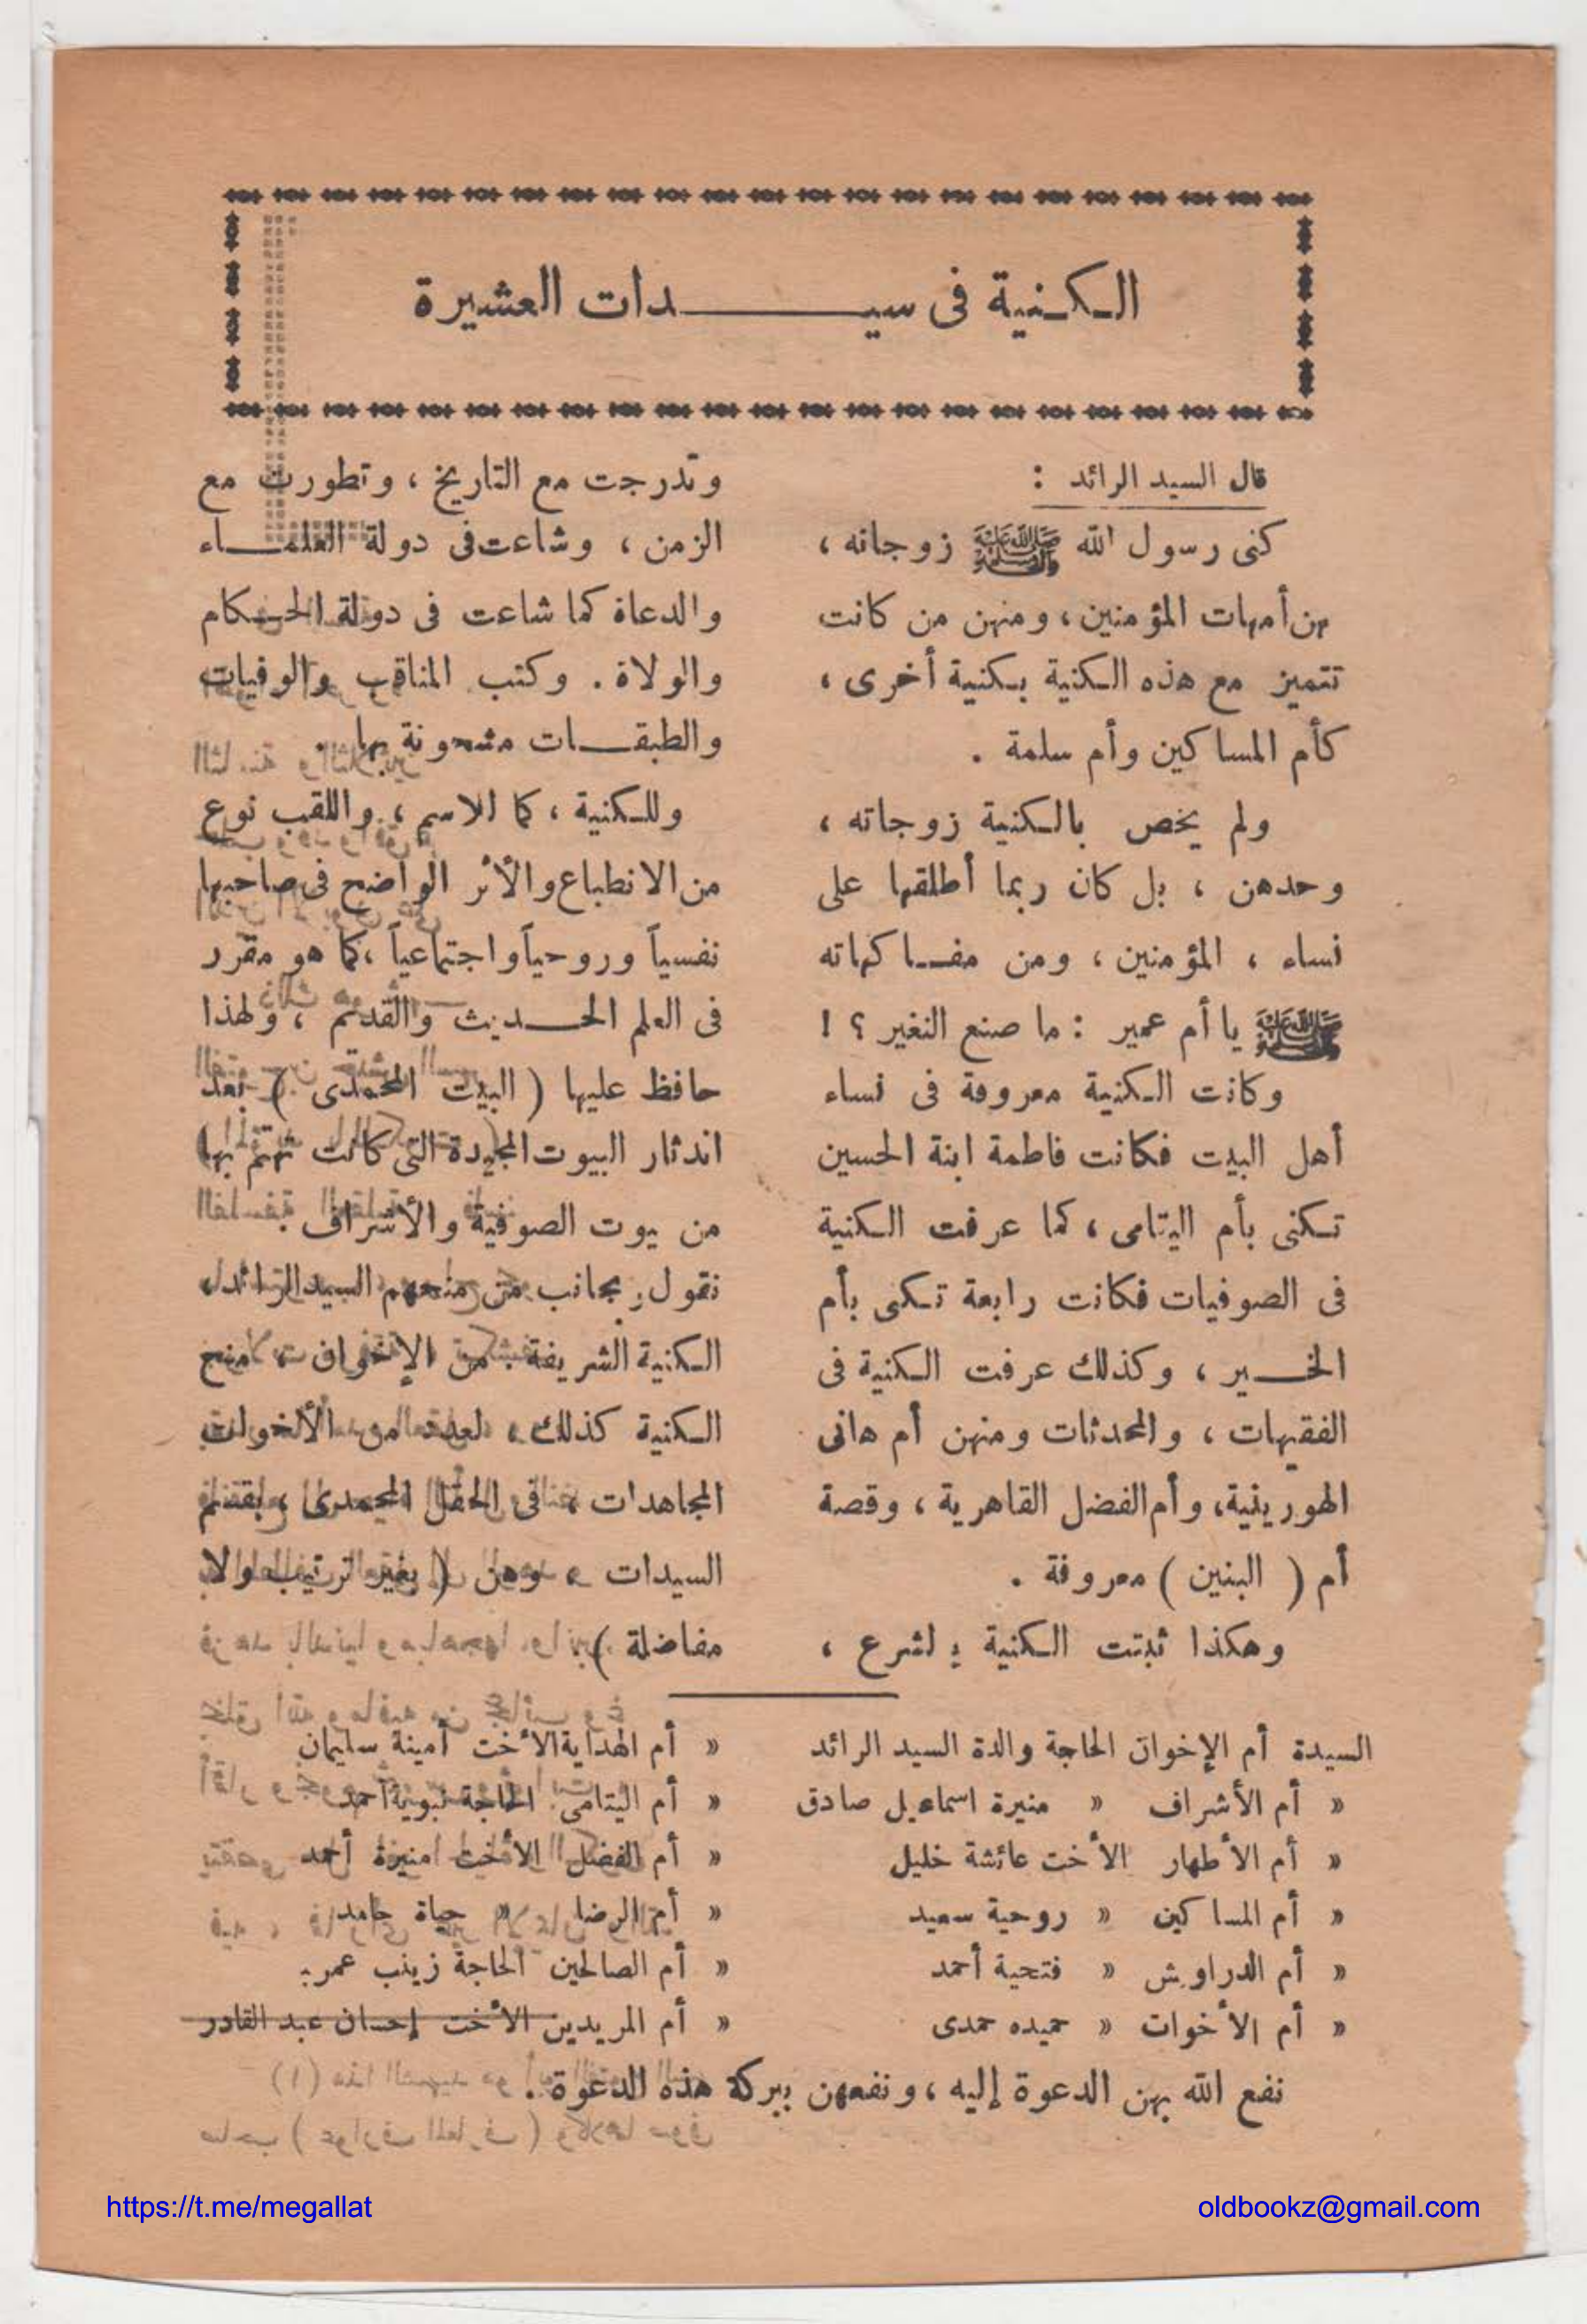 الكنية فى سيدات العشيرة
قال السيد الرائد :
كنى رسول الله ﷺ زوجاته ،
بهن أمهات المؤمنين ، ومنهن من كانت
تتميز مع هذه الكنية بكنية أخرى ،
كأم المساكين وأم سلمة .
ولم يخص بالكنية زوجاته ،
وحدهن ، بل كان ربما أطلقها على
نساء ، المؤمنين ، ومن مفاكهاته
ﷺ يا أم عمير : ما صنع النغير ؟ !
وكانت الكنية معروفة فى نساء
أهل البيت فكانت فاطمة ابنة الحسين
تكنى بأم اليتامى ، كما عرفت الكنية
فى الصوفيات فكانت رابعة تكنى بأم
الخير ، وكذلك عرفت الكنية فى
الفقيهات ، والمحدثات ومنهن أم هانى
الهورينية ، وأم الفضل القاهرية ، وقصة
أم ( البنين ) معروفة .
وهكذا ثبتت الكنية بالشرع ،
وتدرجت مع التاريخ ، وتطورت مع
الزمن ، وشاعت فى دولة العلماء
والدعاة كما شاعت فى دولة الحكام
والولاة . وكتب المناقب والوفيات
والطبقات مشحونة بها .
وللكنية ، كما للاسم ، واللقب نوع
من الانطباع والأثر الواضح فى صاحبها
نفسياً وروحياً واجتماعياً ، كما هو مقرر
فى العلم الحديث والقديم ، ولهذا
حافظ عليها ( البيت المحمدى ) بعد
اندثار البيوت المجيدة التى كانت تهتم بها
من بيوت الصوفية والأشراف .
نقول : بجانب من منحهم السيد الرائد ،
الكنية الشريفة . من الإخوان ، منح
الكنية كذلك ، لعدد من الأخوات
المجاهدات ، فى الحقل المحمدى ، بقسم
السيدات ، وهن ( بغير ترتيب ولا
مفاضلة ) :
السيدة أم الإخوان الحاجة والدة السيد الرائد
« أم الأشراف « منيرة اسماعيل صادق
« أم الأطهار الأخت عائشة خليل
« أم المساكين « روحية سعيد
« أم الدراويش « فتحية أحمد
« أم الأخوات « حميده حمدى
« أم الهداية الأخت أمينة سليمان
« أم اليتامى الحاجة نبوية أحمد
« أم الفضل الأخت منيرة أحمد
« أم الرضا « حياة حامد
« أم الصالحين الحاجة زينب عمر
« أم المريدين الأخت إحسان عبد القادر
نفع الله بهن الدعوة إليه ، ونفعهن ببركة هذه الدعوة .
https://t.me/megallat
oldbookz@gmail.com